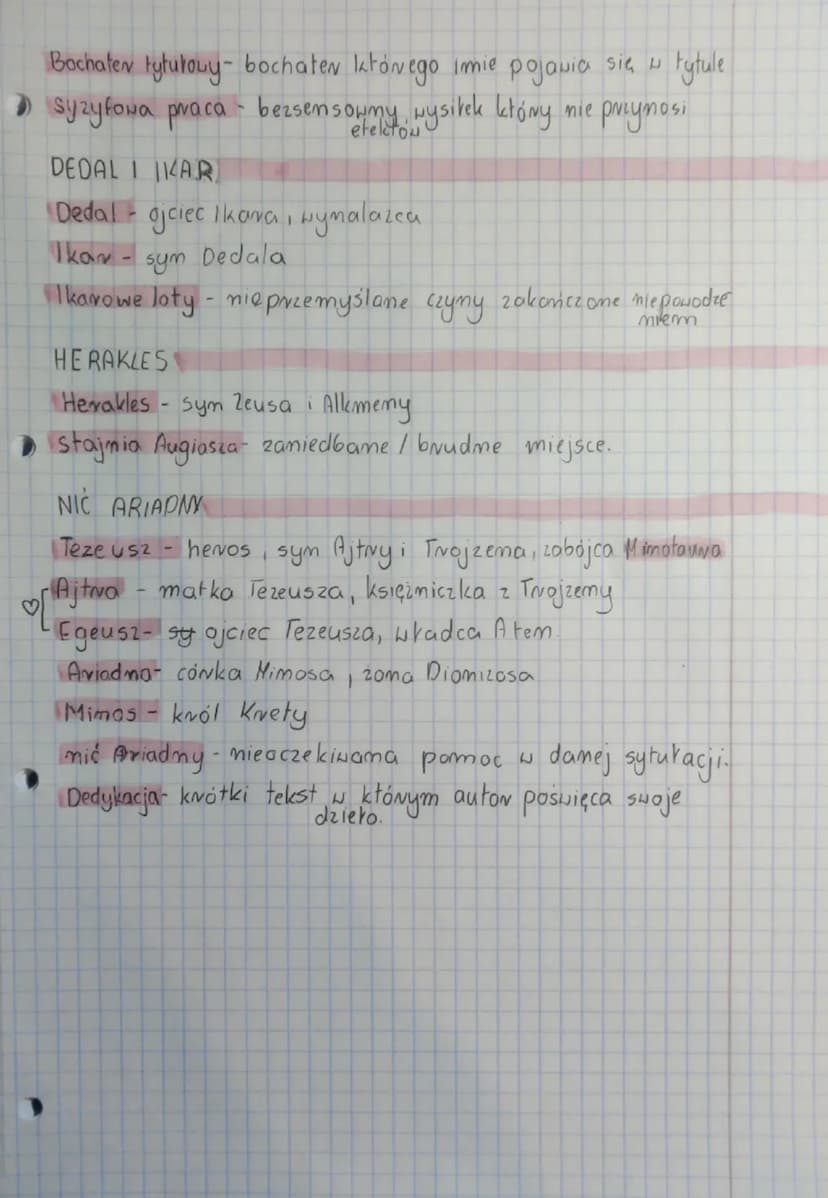 Bochater tytułowy - bochater którego imie pojawia się w tytule
Syzyfowa praca - bezsensowny wysiłek który nie przynosi
efektów
DEDAL I IKAR
Dedal - ojciec Ikara, wynalazca
Ikar - syn Dedala
Ikarowe loty - nieprzemyślane czyny zakończone niepowodze
niem
HERAKLES
Herakles - syn Zeusa i Alkmeny
Stajnia Augiasza - zaniedbane / brudne miejsce.
NIĆ ARIADNY
Tezeusz - heros, syn Ajtry i Trojzena, zabójca Minotaura
Ajtra - matka Tezeusza, księżniczka z Trojzeny
Egeusz - sy ojciec Tezeusza, władca Aten
Ariadna - córka Minosa, żona Dionizosa
Minos - król Krety
nić Ariadny - nieoczekiwana pomoc w danej sytułacji.
Dedykacja - krótki tekst w którym autor poświęca swoje
dzieło.